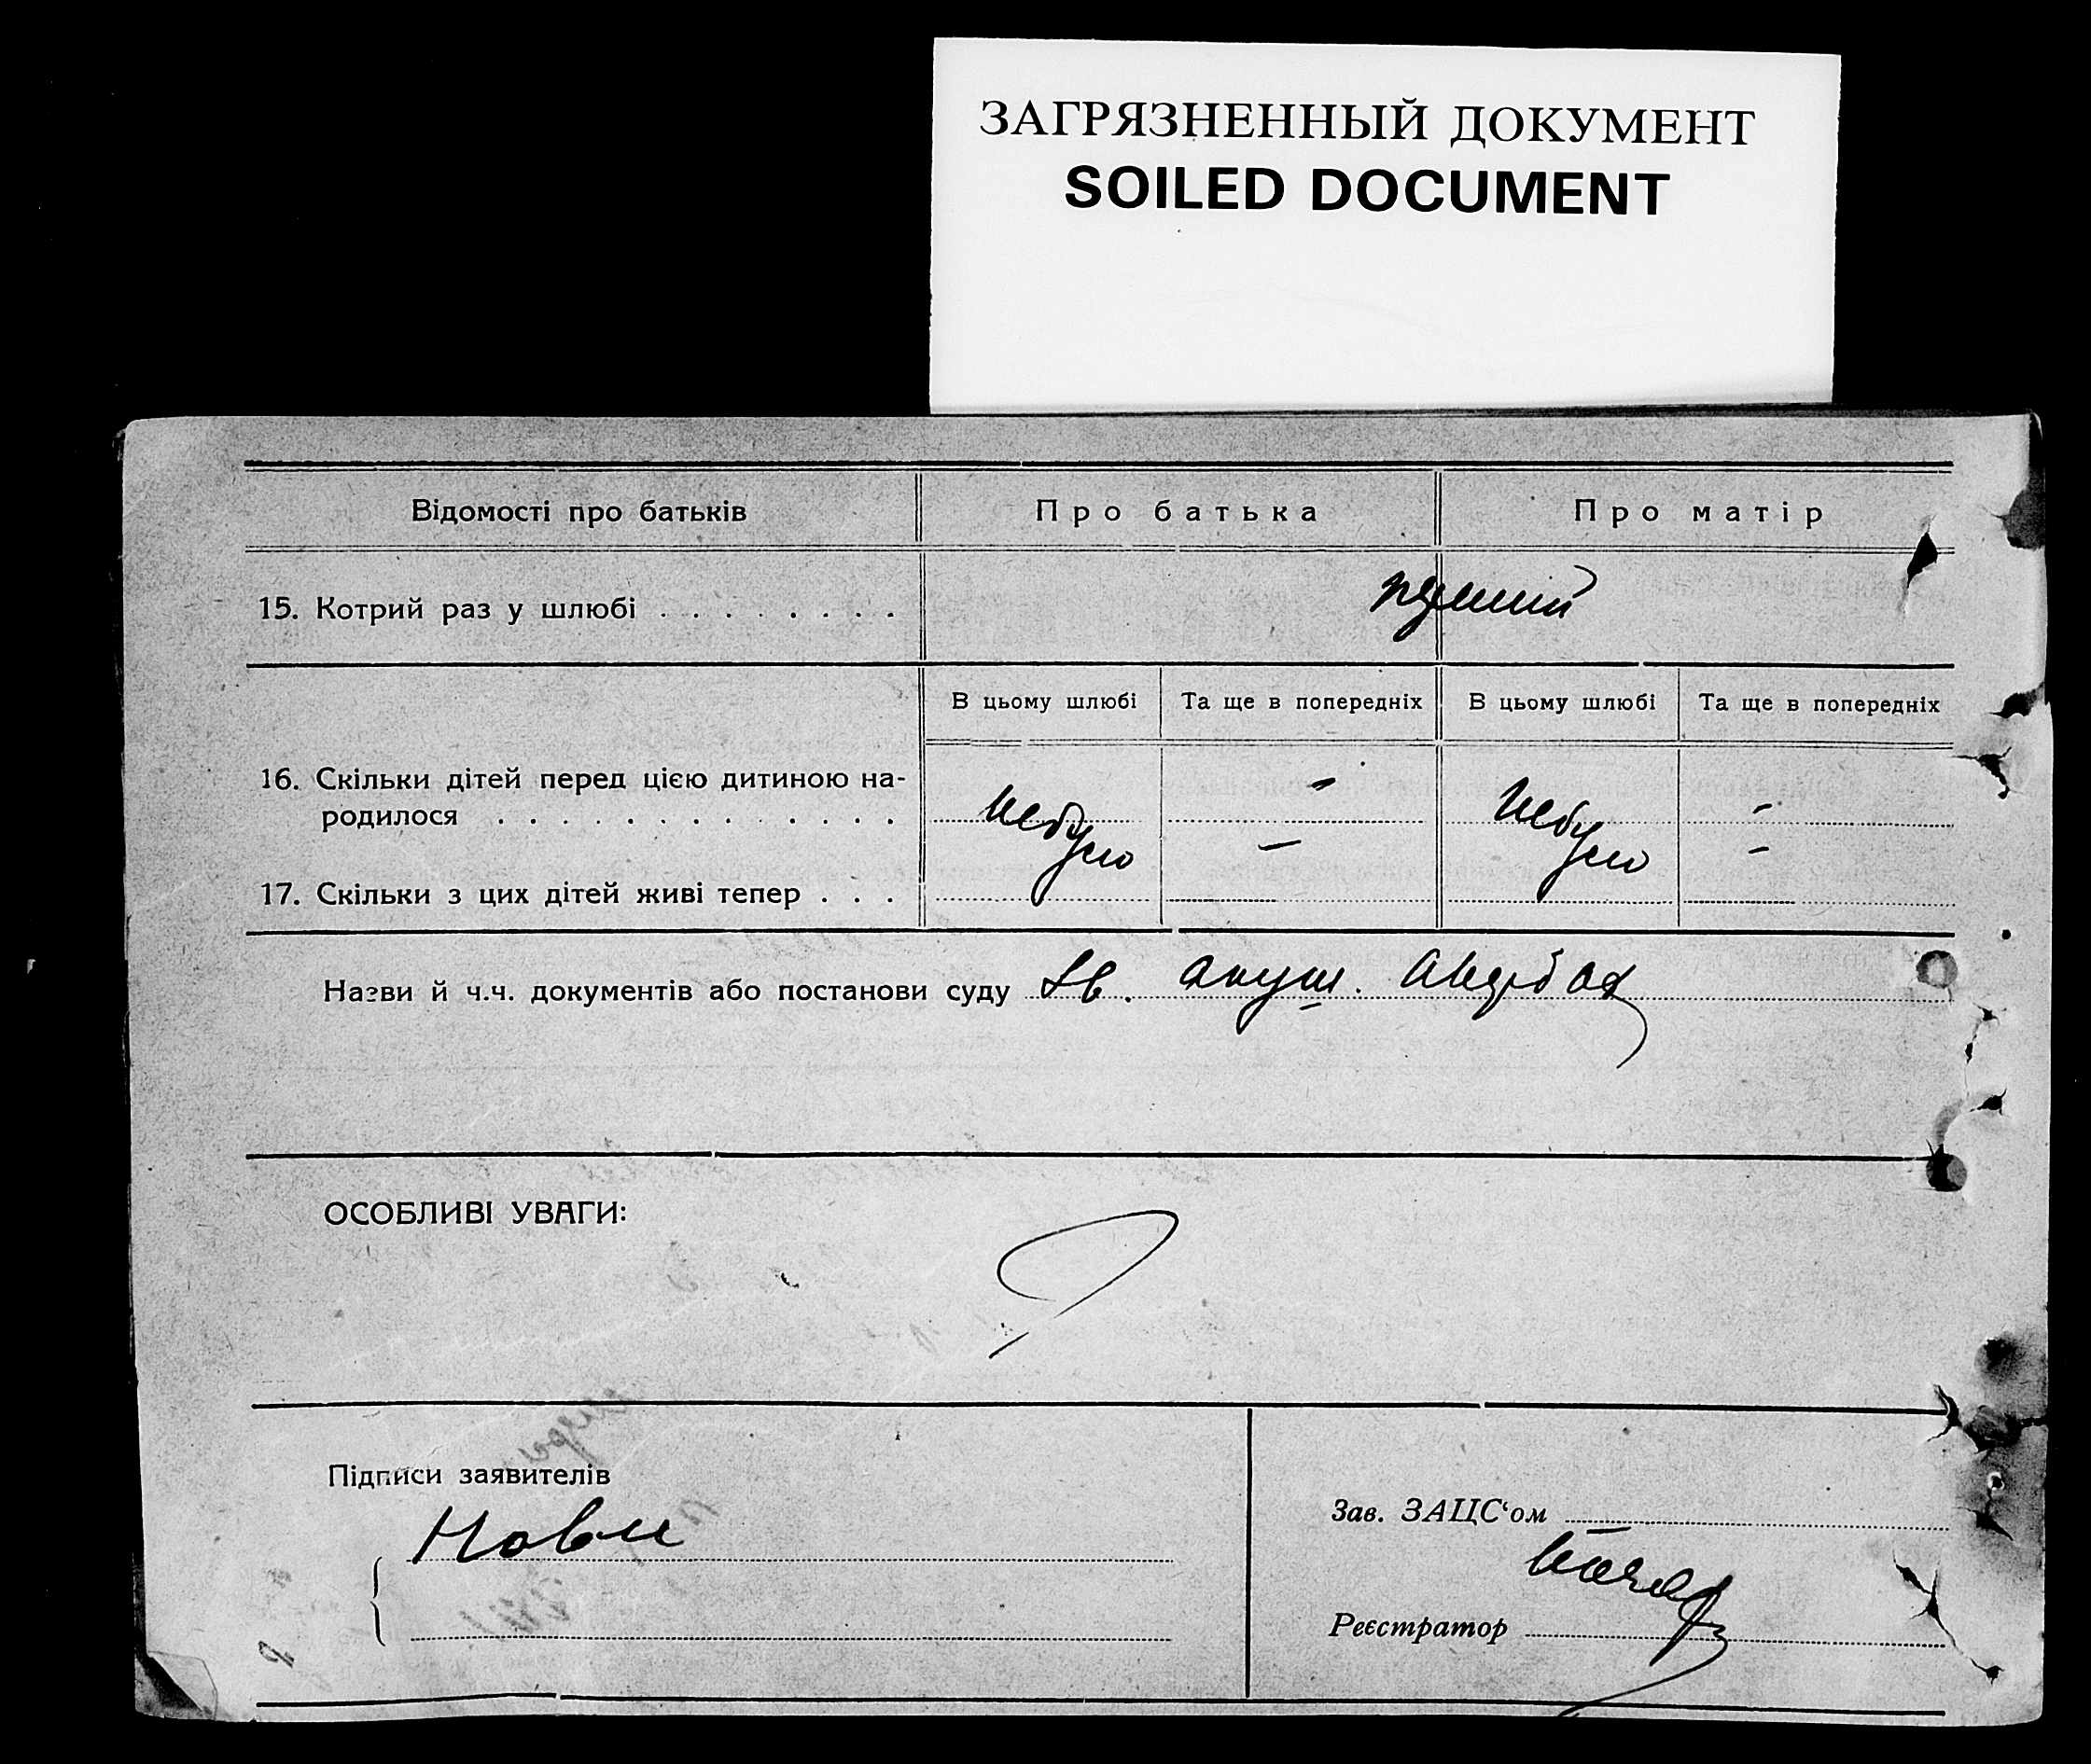 ЗАГРЯЗНЕННЫЙ ДОКУМЕНТ
SOILED DOCUMENT
Відомості про батьків Про батька Про матір
15. Котрий раз у шлюбі . . . . . . . .
В цьому шлюбі Та ще в попередніх В цьому шлюбі Та ще в попередніх
16. Скільки дітей перед цією дитиною на-
родилося . . . . . . . . . . . . . небуло - небуло -
17. Скільки з цих дітей живі тепер . . . - -
Назви й ч.ч. документів або постанови суду акуш.
ОСОБЛИВІ УВАГИ:
Підписи заявителів
Зав. ЗАЦС‘ом
Реєстратор